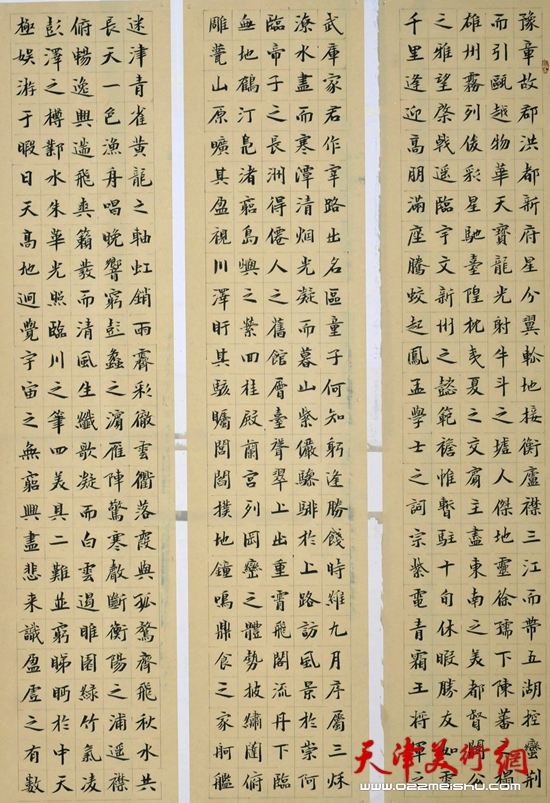 豫章故郡洪都新府星分翼軫地接衡廬襟三江而帶五湖控蠻荊
而引甌越物華天寶龍光射牛斗之墟人傑地靈徐孺下陳蕃之榻
雄州霧列俊彩星馳臺隍枕夷夏之交賓主盡東南之美都督閻公
之雅望棨戟遥臨宇文新州之懿範襜帷暫駐十旬休暇勝友如雲
千里逢迎高朋滿座騰蛟起鳳孟學士之詞宗紫電青霜王將軍之
武庫家君作宰路出名區童子何知躬逢勝餞時維九月序屬三秋
潦水盡而寒潭清烟光凝而暮山紫儼驂騑於上路訪風景於崇阿
臨帝子之長洲得僊人之舊館層臺聳翠上出重霄飛閣流丹下臨
無地鶴汀鳧渚窮島嶼之縈回桂殿蘭宮列岡巒之體勢披繡闥俯
雕甍山原曠其盈視川澤盱其駭矚閭閻撲地鐘鳴鼎食之家舸艦
迷津青雀黃龍之軸虹銷雨霽彩徹雲衢落霞與孤鶩齊飛秋水共
長天一色漁舟唱晚響窮彭蠡之濱雁陣驚寒聲斷衡陽之浦遥襟
俯暢逸興遄飛爽籟發而清風生纖歌凝而白雲遏睢園綠竹氣凌
彭澤之樽鄴水朱華光照臨川之筆四美具二難並窮睇眄於中天
極娛游于暇日天高地迥覺宇宙之無窮興盡悲来識盈虛之有數
天津美術網
www.022meishu.com